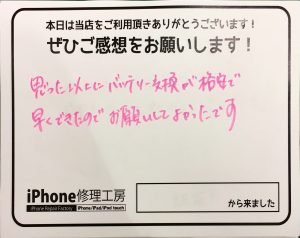 本日は当店をご利用頂きありがとうございます！
ぜひご感想をお願いします！
思った以上にバッテリー交換が格安で
早くできたのでお願いしてよかったです
iPhone修理工房
iPhone Repair Factory iPhone/iPad/iPod touch
から来ました